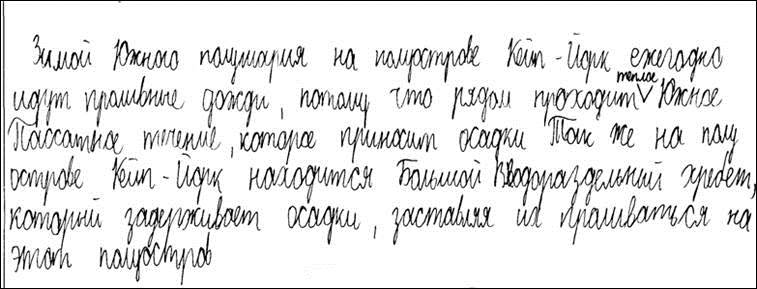 Зимой Южного полушария на полуострове Кейп-Йорк ежегодно
идут проливные дожди, потому что рядом проходит теплое Южное
Пассатное течение, которое приносит осадки Так же на полу
острове Кейп-Йорк находится Большой Водораздельный хребет,
который задерживает осадки, заставляя их проливаться на
этот полуостров